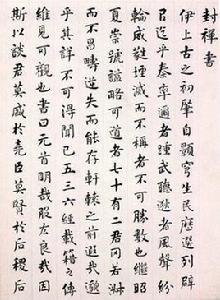 封禪書
伊上古之初肇自顥穹生民歷選列辟
以迄乎秦率邇者踵武聽逖者風聲紛
綸威蕤堙滅而不稱者不可勝數也繼昭
夏崇號謚略可道者七十有二君罔若淑
而不昌疇逆失而能存軒轅之前遐哉邈
乎其詳不可得聞已五三六經載籍之傳
維見可觀也書曰元首明哉股肱良哉因
斯以談君莫盛於堯臣莫賢於后稷后